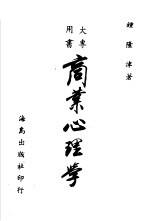 鍾隆津著
大專用書
商業心理學
海為出版社印行